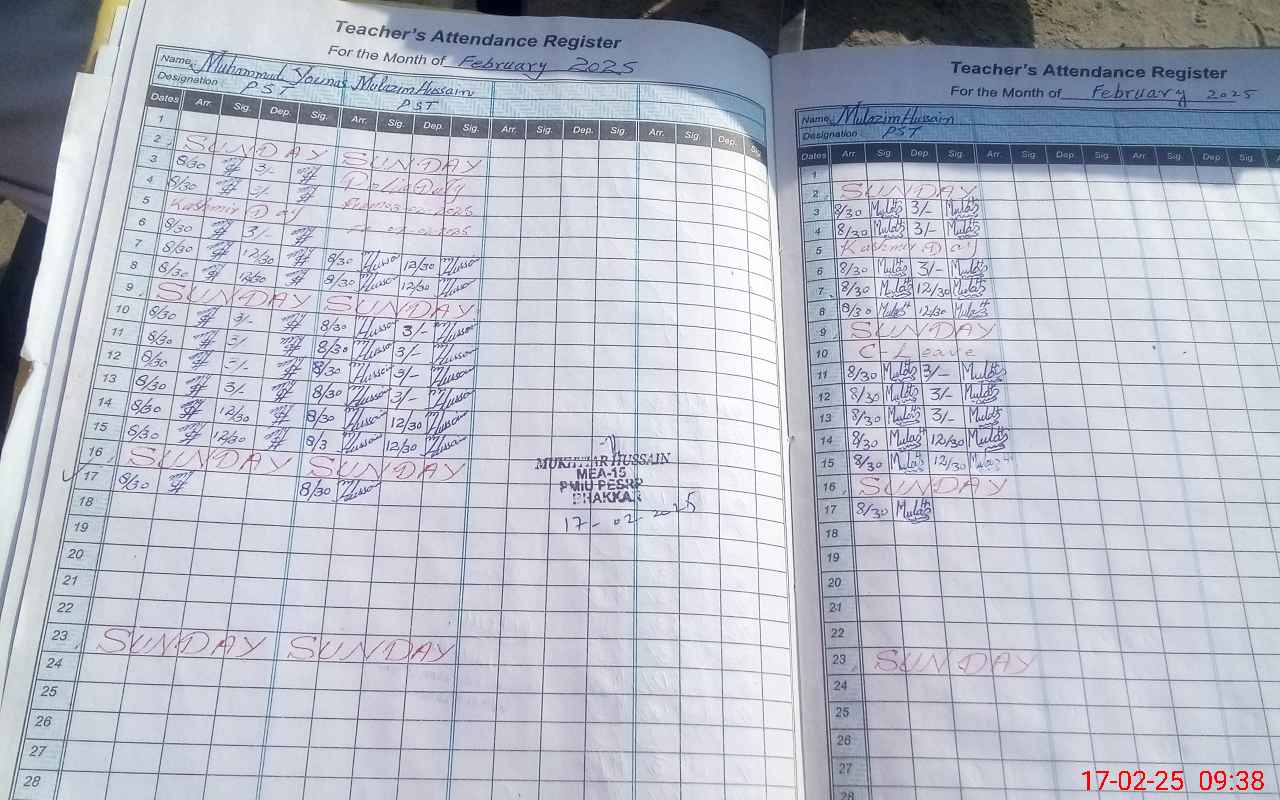 Teacher's Attendance Register
For the Month of February 2025
Name, Muhammad Younas Mulazim Hussain
Designation PST PST
Dates Arr. Sig. Dep. Sig. Arr. Sig. Dep. Sig. Arr. Sig. Dep. Sig. Arr. Sig. Dep. Sig.
1
2, SUNDAY SUNDAY
3 8/30 3/-
4 8/30 3/- Polio Duty
5 Kashmir Day From 03-02-2025
6 8/30 3/-
7 8/30 12/30 8/30 Hussain 12/30 Hussain
8 8/30 12/30 8/30 Hussain 12/30 Hussain
9, SUNDAY SUNDAY
10 8/30 3/- 8/30 Hussain 3/- Hussain
11 8/30 3/- 8/30 Hussain 3/- Hussain
12 8/30 3/- 8/30 Hussain 3/- Hussain
13 8/30 3/- 8/30 Hussain 3/- Hussain
14 8/30 12/30 8/30 Hussain 12/30 Hussain
15 8/30 12/30 8/3 Hussain 12/30 Hussain
16, SUNDAY SUNDAY
17 8/30 8/30 Hussain
18
19
20
21
22
23, SUNDAY SUNDAY
24
25
26
27
28
MUKHTIAR HUSSAIN
MEA-15
PMIU PESRP
BHAKKAR
17-02-2025
Teacher's Attendance Register
For the Month of February 2025
Name, Mulazim Hussain
Designation PST
Dates Arr. Sig. Dep Sig. Arr. Sig. Dep. Sig. Arr. Sig. Dep Sig.
1
2, SUNDAY
3 8/30 3/-
4 8/30 3/-
5 Kashmir Day
6 8/30 3/-
7 8/30 12/30
8 8/30 12/30
9, SUNDAY
10 C-Leave
11 8/30 3/-
12 8/30 3/-
13 8/30 3/-
14 8/30 12/30
15 8/30 12/30
16, SUNDAY
17 8/30
18
19
20
21
22
23, SUNDAY
24
25
26
27
28
17-02-25 09:38